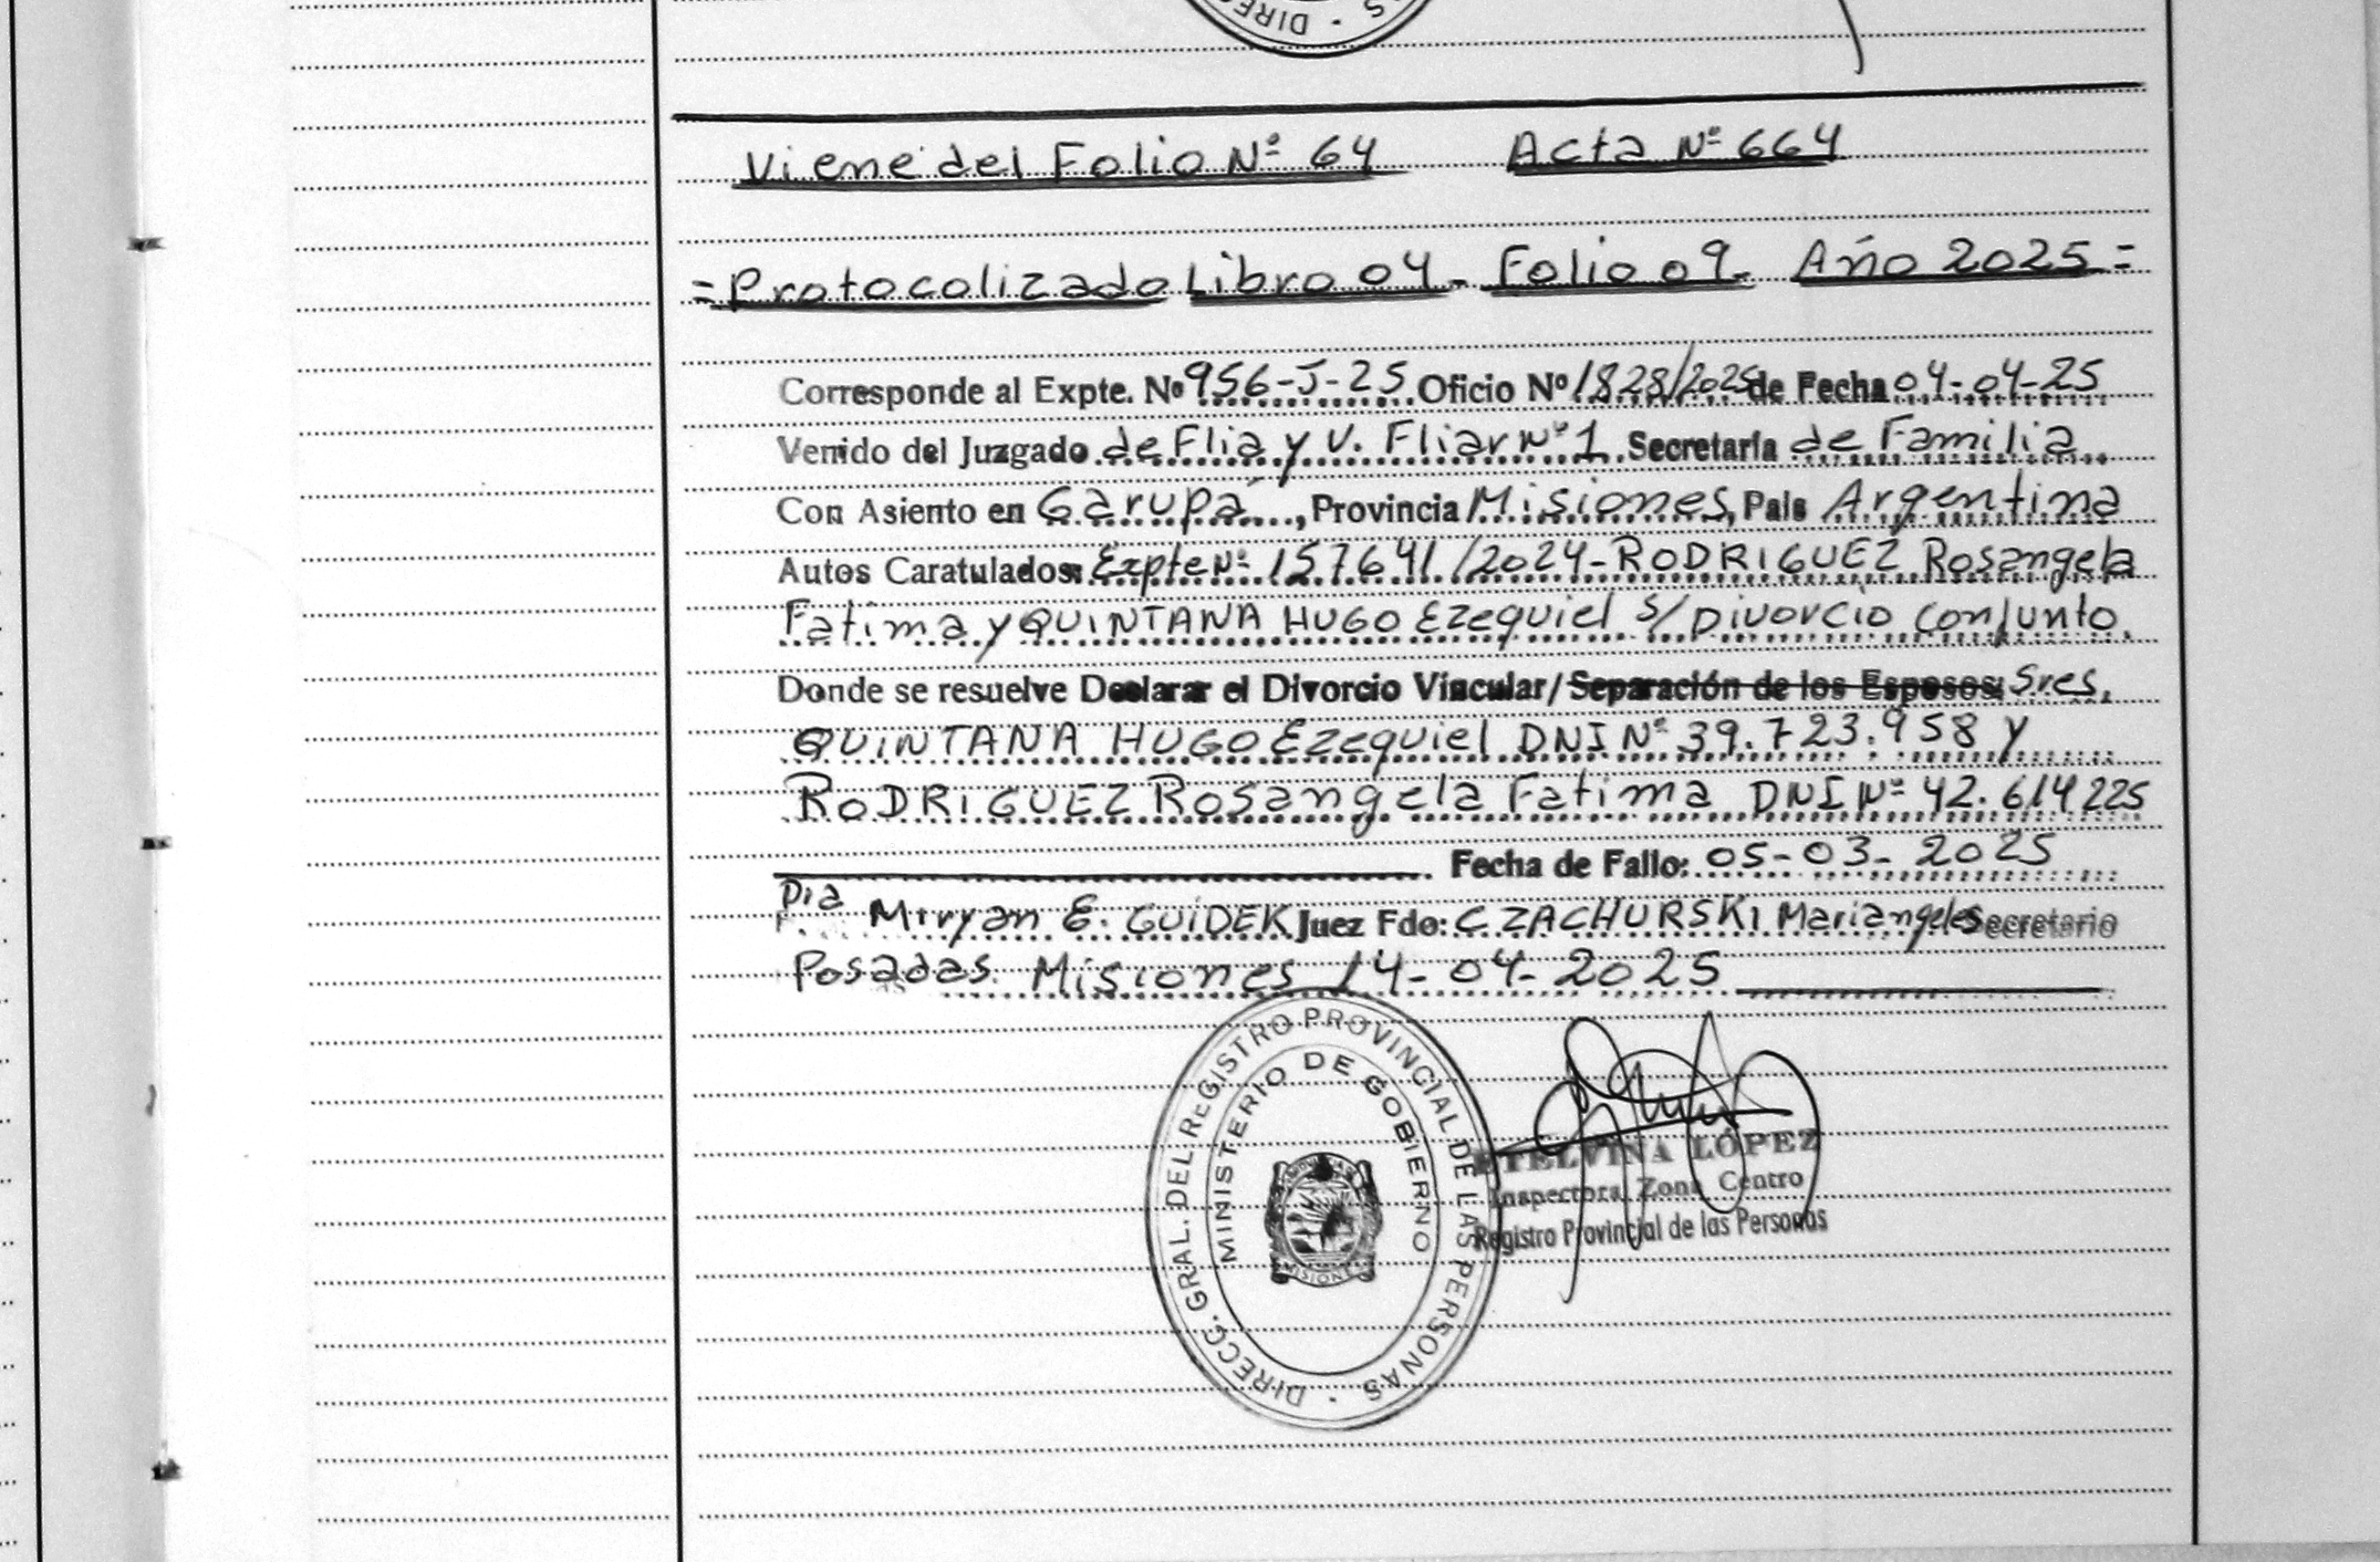 DIREC
Viene del Folio Nº 64 Acta Nº 664
=Protocolizado Libro 04- Folio 09- Año 2025=
Corresponde al Expte. Nº 956-J-25 Oficio Nº 1828/2025 de Fecha 04-04-25
Venido del Juzgado de Flia y V. Fliar Nº 1 Secretaría de Familia
Con Asiento en Garupá, Provincia Misiones, País Argentina
Autos Caratulados: Expte Nº 157641/2024-RODRIGUEZ Rosangela
Fatima y QUINTANA HUGO Ezequiel s/ Divorcio conjunto
Donde se resuelve Declarar el Divorcio Vincular/Separación de los Esposos: Sres.
QUINTANA HUGO Ezequiel DNI Nº 39.723.958 y
RODRIGUEZ Rosangela Fatima DNI Nº 42.614225
Fecha de Fallo: 05-03-2025
Dra Miryan E. GUIDEK Juez Fdo: CZACHURSKI Mariangeles Secretario
Posadas Misiones 14-04-2025
DIRECC. GRAL. DEL REGISTRO PROVINCIAL DE LAS PERSONAS
MINISTERIO DE GOBIERNO
MISIONES
ETELVINA LÓPEZ
Inspectora Zona Centro
Registro Provincial de las Personas